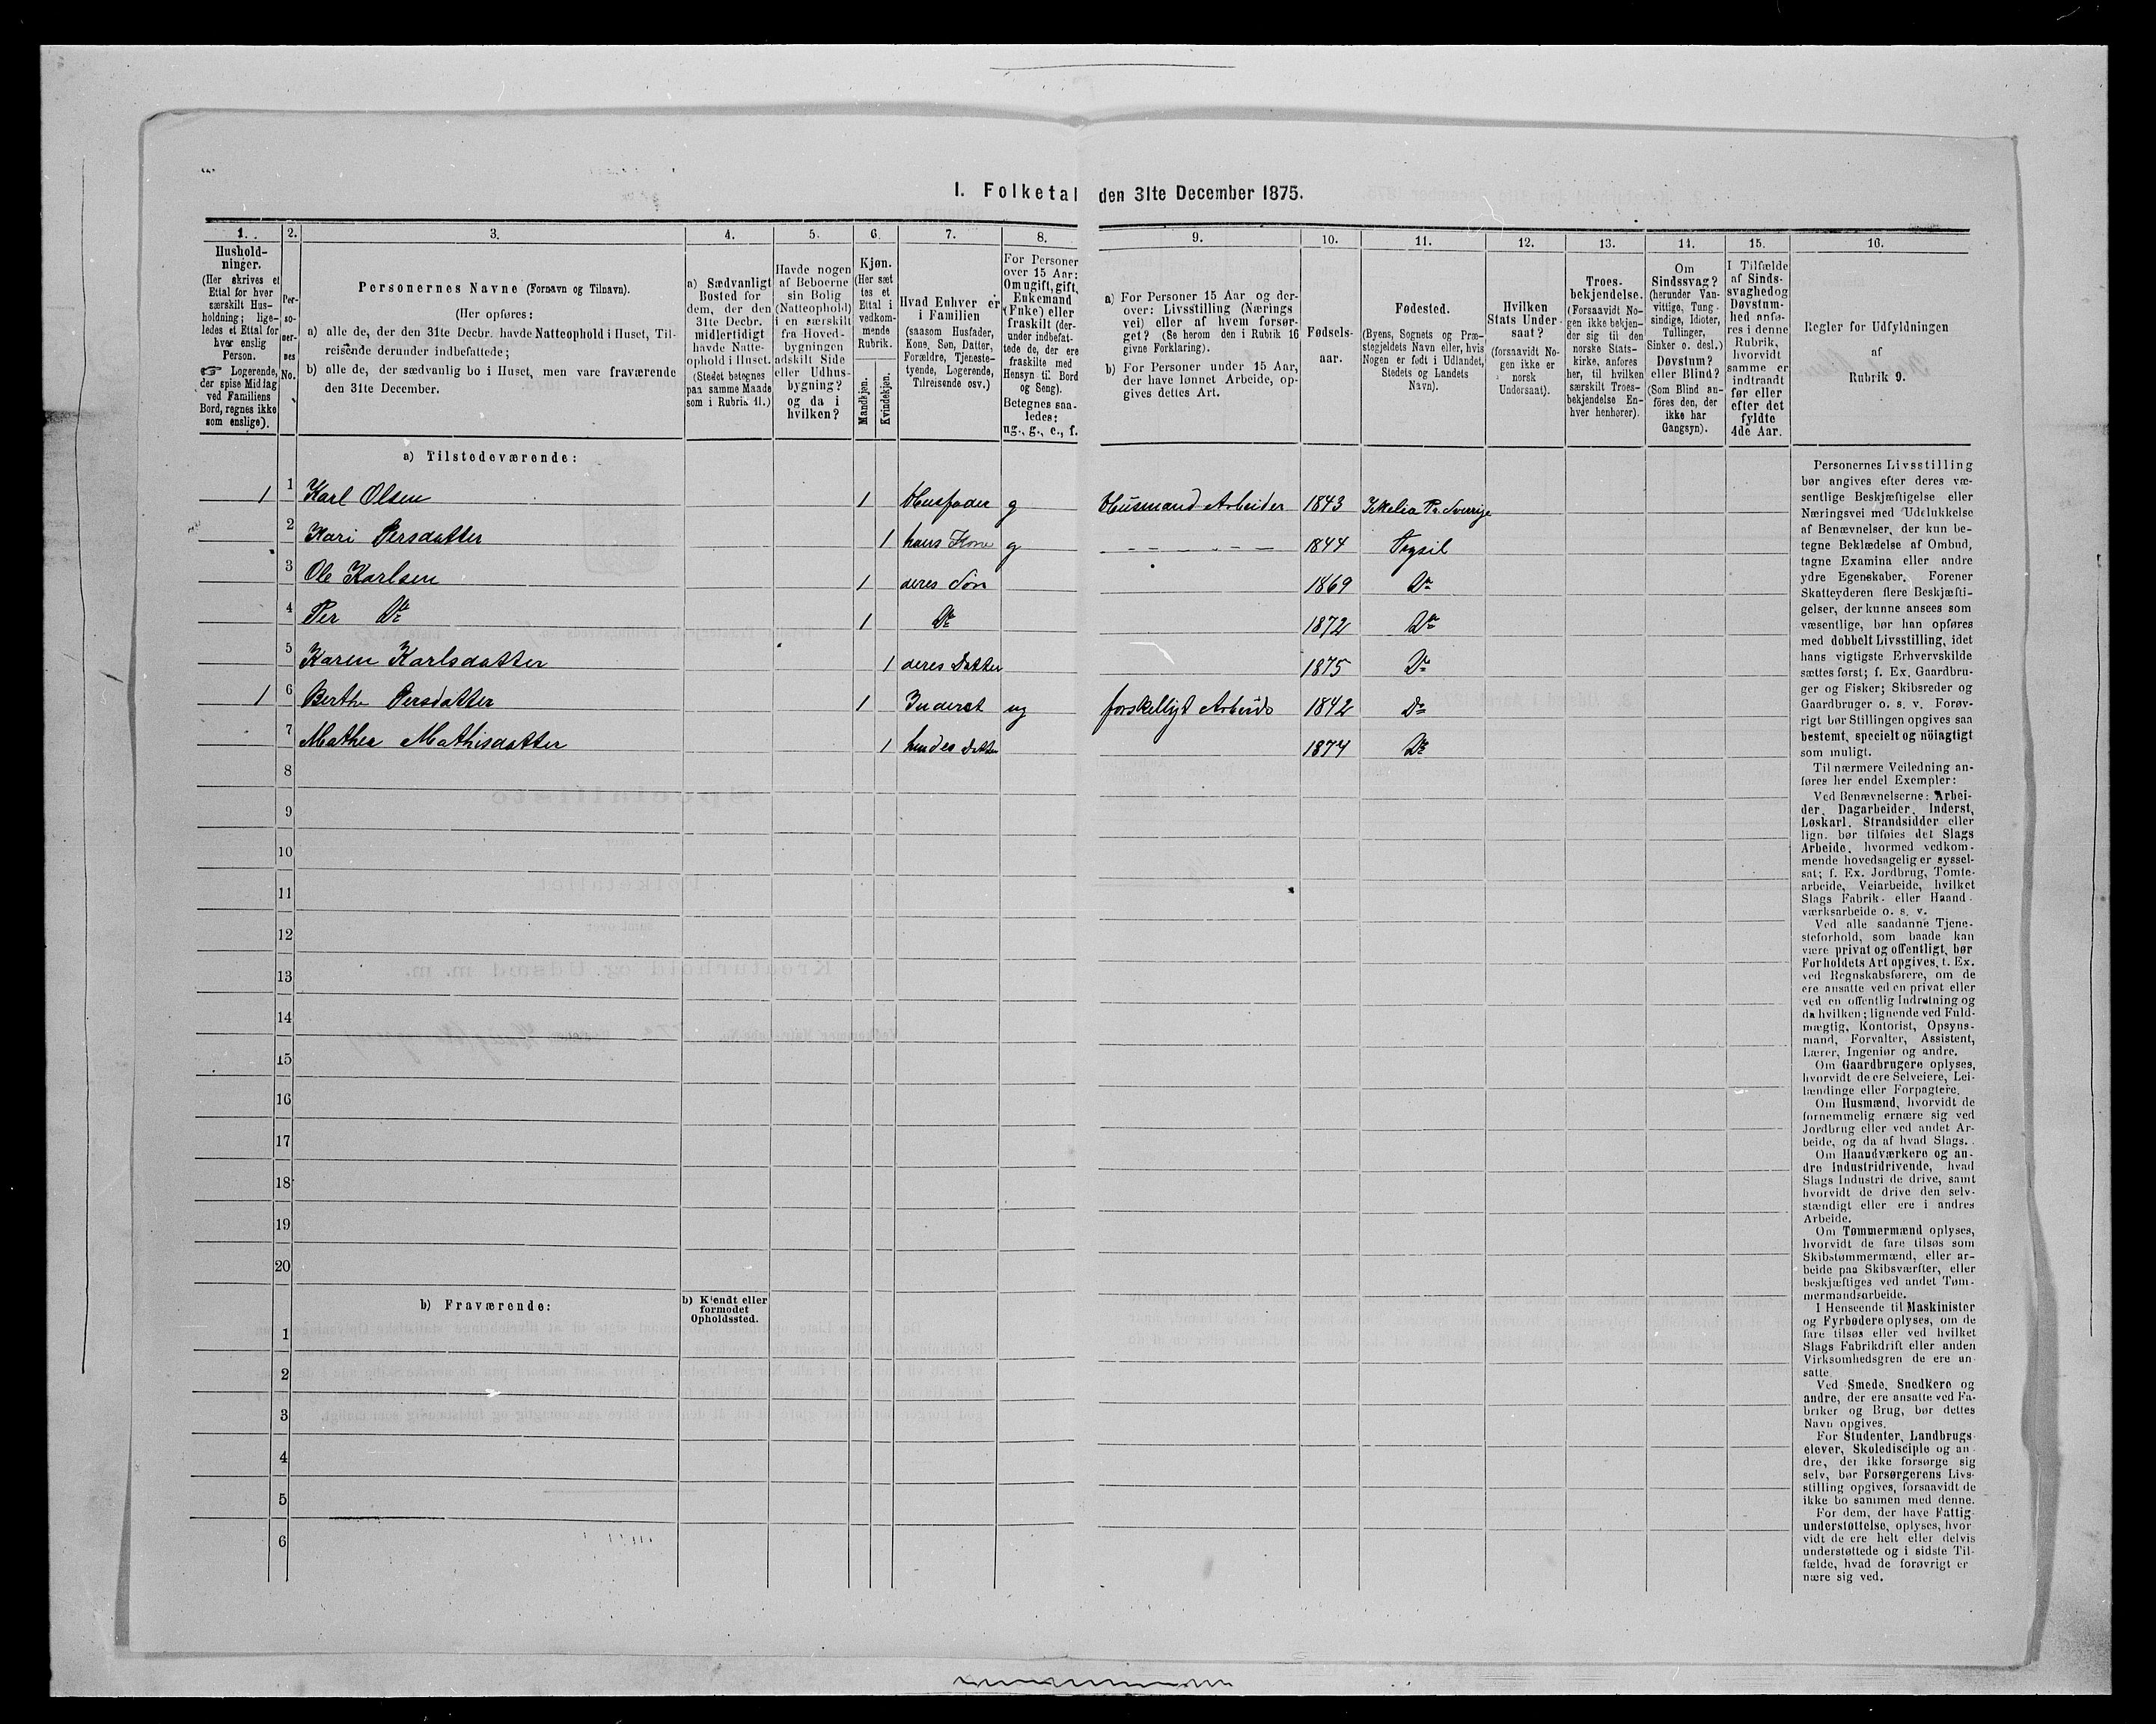 I. Folketal den 31te December 1875.
1. 2. 3. 4. 5. 6. 7. 8. 9. 10. 11. 12. 13. 14. 15. 16.
Hushold-
ninger.
(Her skrives et
Ettal for hver
særskilt Hus-
holdning; lige-
ledes et Ettal for
hver enslig
Person.
☞ Logerende,
der spise Middag
ved Familiens
Bord, regnes ikke
som enslige).
Per-
so-
ner-
nes
No.
Personernes Navne (Fornavn og Tilnavn).
(Her opføres:
a) alle de, der den 31te Decbr. havde Natteophold i Huset, Til-
reisende derunder indbefattede;
b) alle de, der sædvanlig bo i Huset, men vare fraværende
den 31te December.
a) Sædvanligt
Bosted for
dem, der den
31te Decbr.
midlertidigt
havde Natte-
ophold i Huset.
(Stedet betegnes
paa samme Maade
som i Rubrik 11.)
Havde nogen
af Beboerne
sin Bolig
(Natteophold)
i en særskilt
fra Hoved-
bygningen
adskilt Side
eller Udhus-
bygning?
og da i
hvilken?
Kjøn.
(Her sæt
tes et
Ettal i
vedkom-
mende
Rubrik.
Mandkjøn.
Kvindekjøn.
Hvad Enhver er
i Familien
(saasom Husfader,
Kone, Søn, Datter,
Forældre, Tjeneste-
tyende, Logerende,
Tilreisende osv.)
For Personer
over 15 Aar:
Om ugift, gift,
Enkemand
(Enke) eller
fraskilt (der-
under indbefat-
tede de, der ere
fraskilte med
Hensyn til Bord
og Seng).
Betegnes saa-
ledes:
ug., g., e., f.
a) For Personer 15 Aar og der-
over: Livsstilling (Nærings
vei) eller af hvem forsør-
get? (Se herom den i Rubrik 16
givne Forklaring).
b) For Personer under 15 Aar,
der have lønnet Arbeide, op-
gives dettes Art.
Fødsels-
aar.
Fødested.
(Byens, Sognets og Præ-
stegjeldets Navn eller, hvis
Nogen er født i Udlandet,
Stedets og Landets
Navn).
Hvilken
Stats Under-
saat?
(forsaavidt No-
gen ikke er
norsk
Undersaat).
Troes-
bekjendelse.
(Forsaavidt No-
gen ikke bekjen-
der sig til den
norske Stats-
kirke, anføres
her, til hvilken
særskilt Troes-
bekjendelse En-
hver henhører).
Om
Sindssvag?
(herunder Van-
vittige, Tung-
sindige, Idioter,
Tullinger,
Sinker o. desl.)
Døvstum?
eller Blind?
(Som Blind an-
föres den, der
ikke har
Gangsyn).
I Tilfælde
af Sinds-
svaghed og
Døvstum-
hed anfø-
res i denne
Rubrik,
hvorvidt
samme er
indtraadt
før eller
efter det
fyldte
4de Aar.
Regler for Udfyldningen
af
Rubrik 9.
a) Tilstedeværende:
1 1 Karl Olsen 1 Husfader g Husmand Arbeider 1843 Pr. Sverrige
2 Kari Persdatter 1 hans Kone g 1844 Trysil
3 Ole Karlsen 1 deres Søn 1869 Do
4 Per Do 1 Do 1872 Do
5 Karen Karlsdatter 1 deres Datter 1875 Do
1 6 Berthe Persdatter 1 Inderst ug forskelligt Arbeide 1842 Do
7 Mathea Mathisdatter 1 hendes Datter 1874 Do
8
9
10
11
12
13
14
15
16
17
18
19
20
b) Fraværende:
b) Kjendt eller
formodet
Opholdssted.
1
2
3
4
5
6
Personernes Livsstilling
bør angives efter deres væ-
sentlige Beskjæftigelse eller
Næringsvei med Udelukkelse
af Benævnelser, der kun be-
tegne Beklædelse af Ombud,
tagne Examina eller andre
ydre Egenskaber. Forener
Skatteyderen flere Beskjæfti-
gelser, der kunne ansees som
væsentlige, bør han opføres
med dobbelt Livsstilling, idet
hans vigtigste Erhvervskilde
sættes først; f. Ex. Gaardbru-
ger og Fisker; Skibsreder og
Gaardbruger o. s. v. Forøv-
rigt bør Stillingen opgives saa
bestemt, specielt og nöiagtigt
som muligt.
Til nærmere Veiledning an-
føres her endel Exempler:
Ved Benævnelserne: Arbei-
der, Dagarbeider, Inderst,
Løskarl, Strandsidder eller
lign. bør tilføies det Slags
Arbeide, hvormed vedkom-
mende hovedsagelig er syssel-
sat; f. Ex. Jordbrug, Tomte-
arbeide, Veiarbeide, hvilket
Slags Fabrik- eller Haand-
værksarbeide o. s. v.
Ved alle saadanne Tjene-
steforhold, som baade kan
være privat og offentligt, bør
Forholdets Art opgives, t. Ex.
ved Regnskabsførere, om de
ere ansatte ved en privat eller
ved en offentlig Indretning og
da hvilken; lignende ved Fuld-
mægtig, Kontorist, Opsyns-
mand, Forvalter, Assistent,
Lærer, Ingeniør og andre.
Om Gaardbrugere oplyses,
hvorvidt de ere Selveiere, Lei-
lændinge eller Forpagtere.
Om Husmænd, hvorvidt de
fornemmelig ernære sig ved
Jordbrug eller ved andet Ar-
beide, og da af hvad Slags.
Om Haandværkere og an-
dre Industridrivende, hvad
Slags Industri de drive, samt
hvorvidt de drive den selv-
stændigt eller ere i andres
Arbeide.
Om Tømmermænd oplyses,
hvorvidt de fare tilsøs som
Skibstømmermænd, eller ar-
beide paa Skibsværfter, eller
beskjæftiges ved andet Tøm-
mermandsarbeide.
I Henseende til Maskinister
og Fyrbødere oplyses, om de
fare tilsøs eller ved hvilket
Slags Fabrikdrift eller anden
Virksomhedsgren de ere an-
satte.
Ved Smede, Snedkere og
andre, der ere ansatte ved Fa-
briker og Brug, bør dettes
Navn opgives.
For Studenter, Landbrugs-
elever, Skoledisciple og an-
dre, der ikke forsørge sig
selv, bør Forsørgerens Livs-
stilling opgives, forsaavidt de
ikke bo sammen med denne.
For dem, der have Fattig-
understøttelse, oplyses, hvor-
vidt de ere helt eller delvis
understøttede og i sidste Til-
fælde, hvad de forøvrigt er-
nære sig ved.